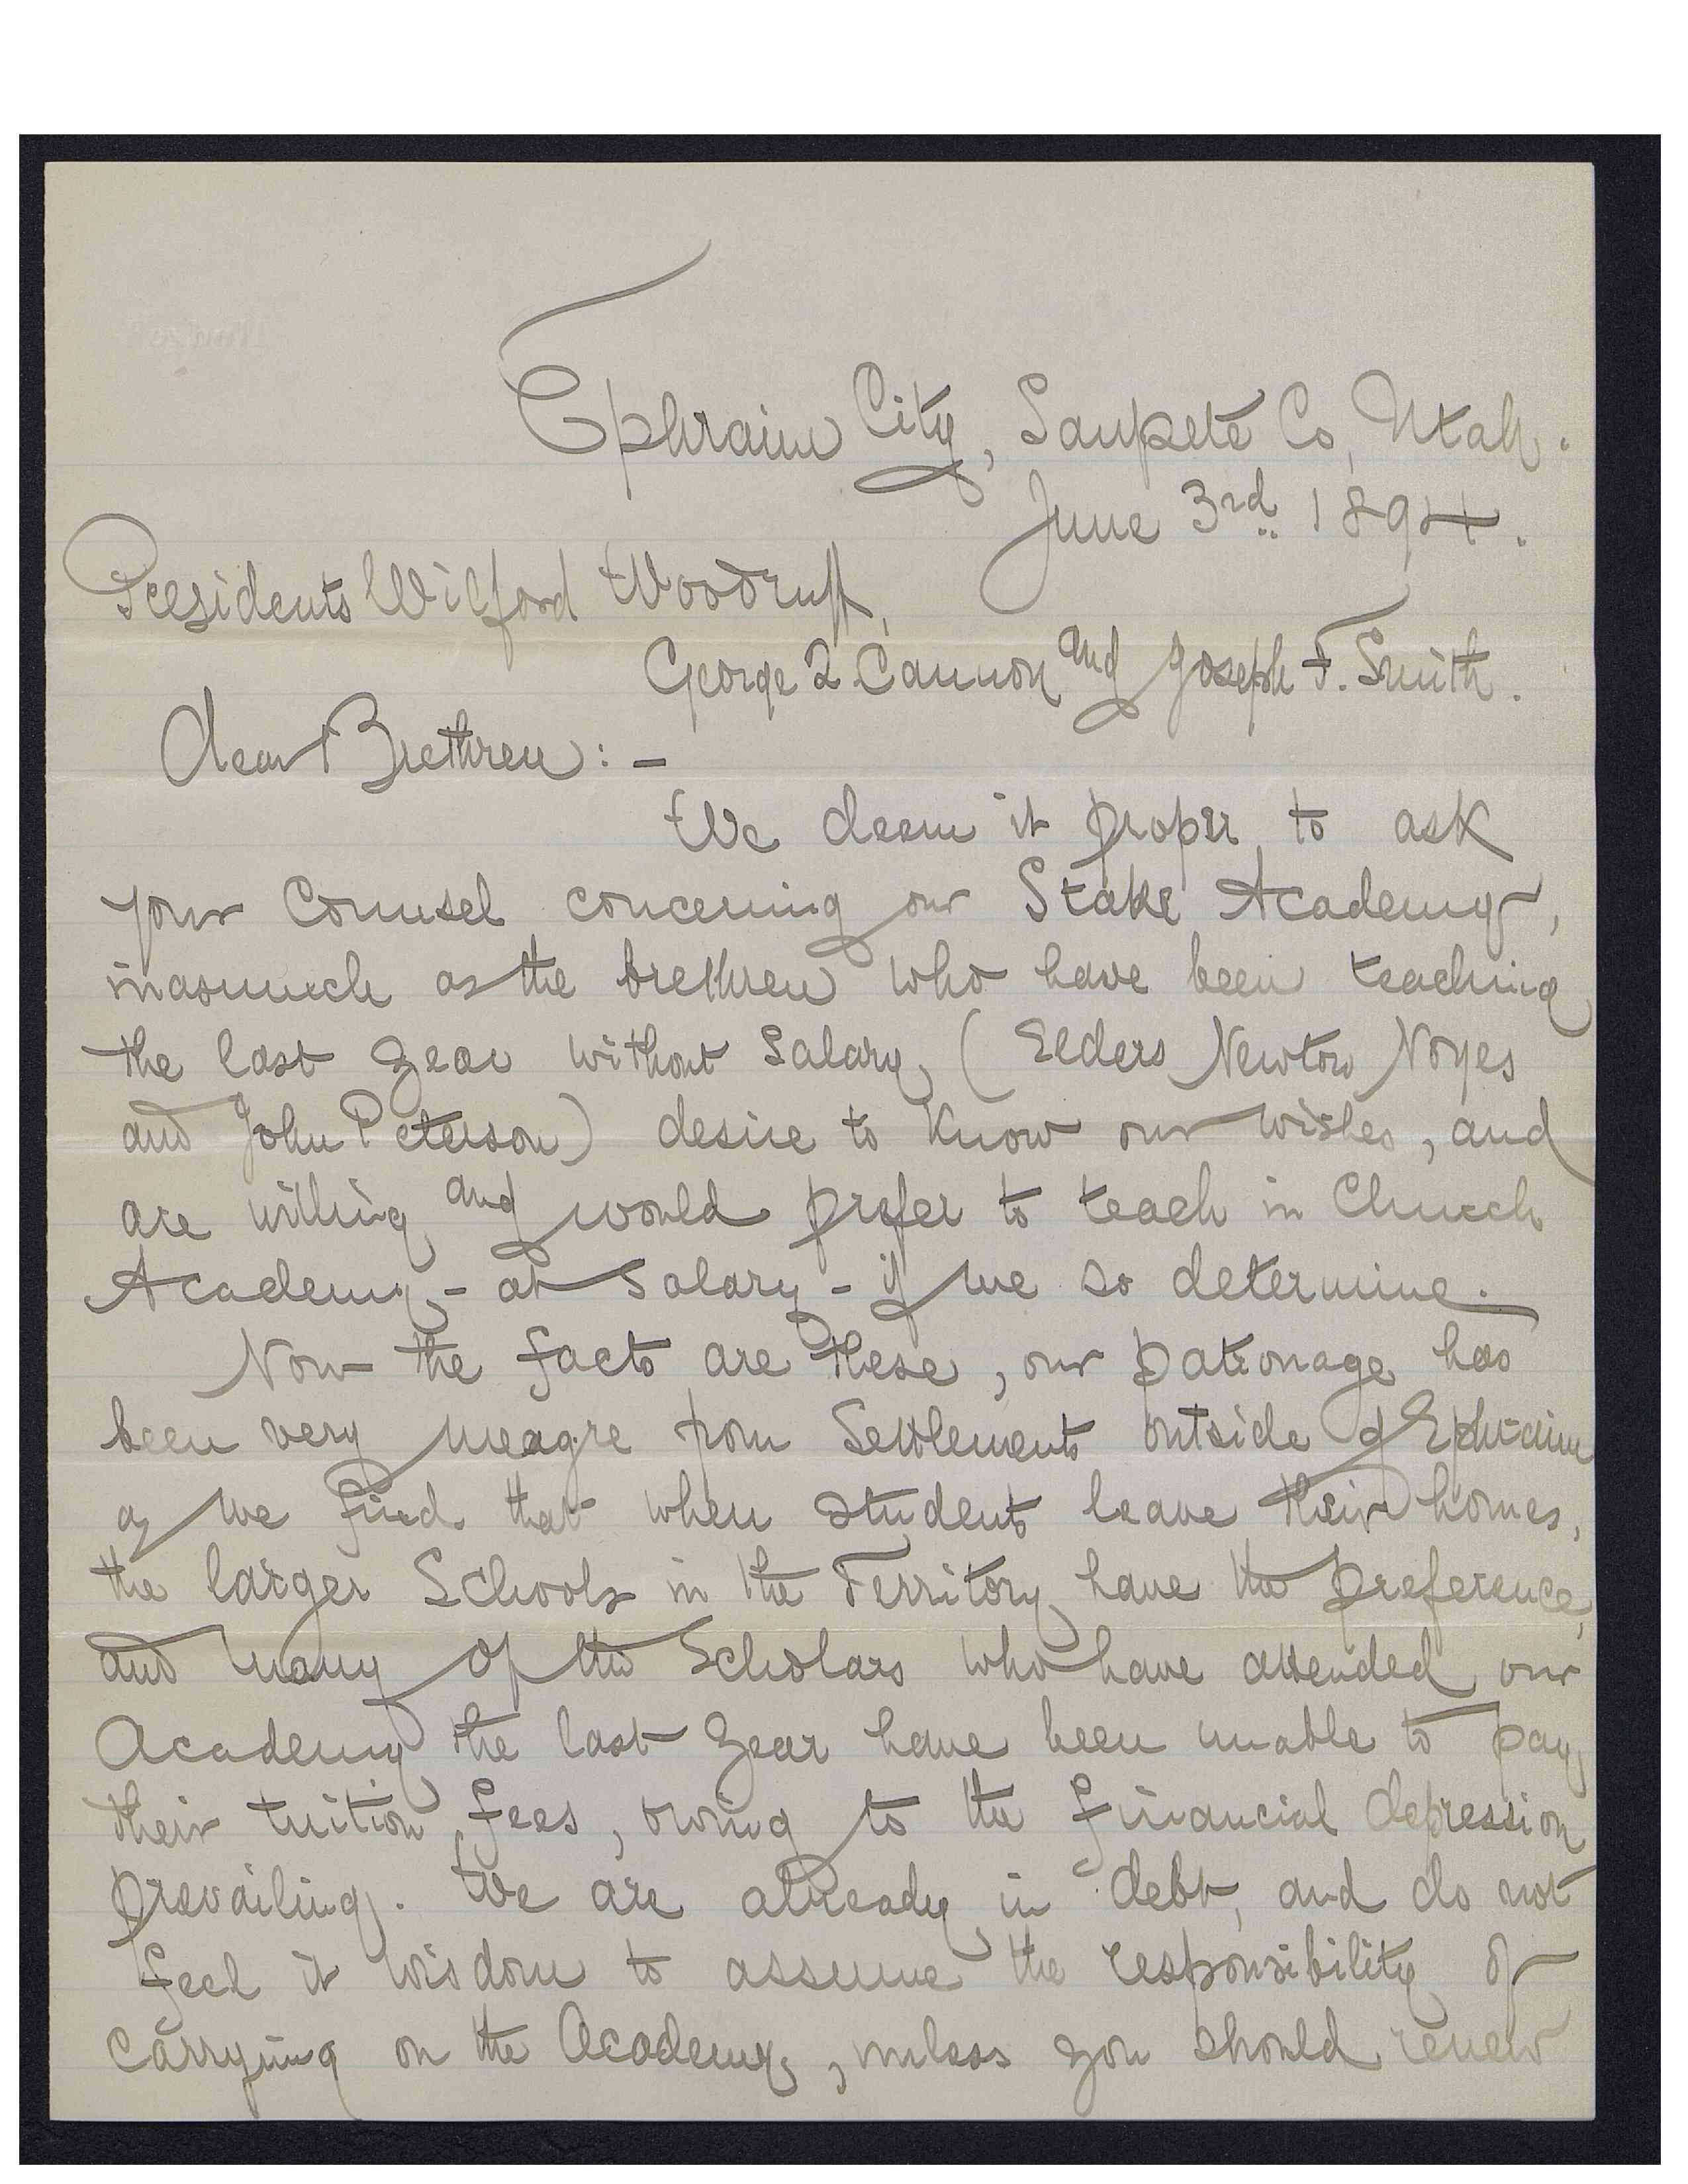 Ephraim City, Sanpete Co, Utah.
June 3rd. 1894.
Presidents Wilford Woodruff,
George Q Cannon and Joseph F. Smith.
Dear Brethren: –
We deem it proper to ask
your Counsel concerning our Stake Academy,
inasmuch as the brethren who have been teaching
the last year without Salary, (Elders Newton Noyes
and John Peterson) desire to know our wishes, and
are willing and would prefer to teach in Church
Academy – at Salary – if we so determine.
Now the facts are these, our patronage has
been very meagre from Settlements outside of Ephraim
as we find that when students leave their homes,
the larger Schools in the Territory have the preference,
and many of the Scholars who have attended our
Academy the last year have been unable to pay
their tuition fees, owing to the financial depression
prevailing. We are already in debt, and do not
feel it wisdom to assume the responsibility of
carrying on the Academy, unless you should renew